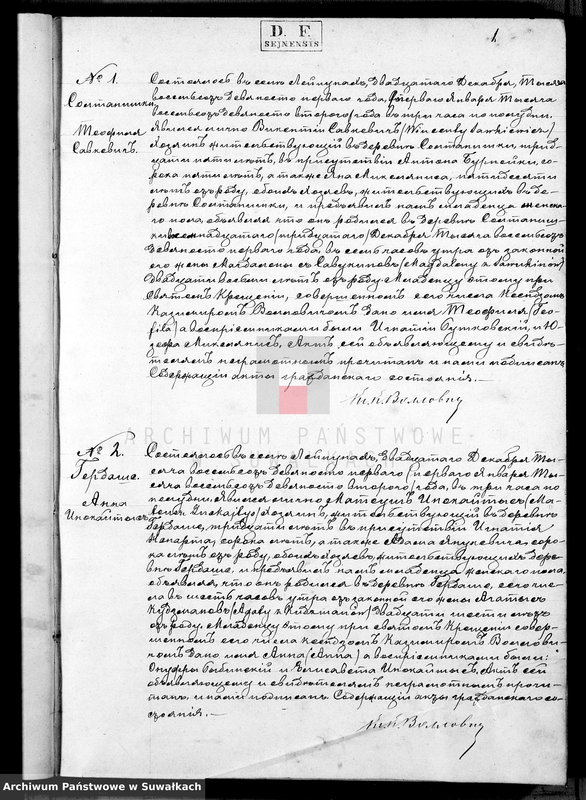 D. F.
SEJNENSIS
1
№ 1.
Солтанишки
Теофиля
Савкевичъ.
Состоялось въ селѣ Лейпунахъ, двадцатаго Декабря, тысяча
восемьсотъ девяносто перваго года (перваго Января тысяча
восемьсотъ девяносто второго) года въ три часа по полудни.
Явился лично Викентій Савкевичъ (Wincenty Sawkiewicz)
жительствующій въ деревнѣ Солтанишки, трид-
цати пяти лѣтъ, въ присутствіи Антона со-
рока пяти лѣтъ, а также Яна пятидесяти
лѣтъ отъ роду, обоихъ жительствующихъ въ де-
ревнѣ Солтанишки, и предъявилъ намъ младенца женска-
го пола, объявляя что онъ родился въ деревнѣ Солтаниш-
ки (тридцатаго) Декабря тысяча восемьсотъ
девяносто перваго года, въ семь часовъ утра отъ законной
его жены Магдалены съ (Magdaleny z
двадцати восьми лѣтъ отъ роду. Младенцу этому при
Святомъ Крещеніи, совершенномъ сего числа Ксендзомъ
Казимиромъ Волловичомъ дано имя Теофиля (Teo-
fila) а воспріемниками были Игнатій Бутковскій, и Ю-
зефа Актъ сей объявляющему и свидѣ-
телямъ неграмотнымъ прочитанъ и нами подписанъ
Содержащій акты гражданскаго состоянія.—
Кс. К. Воллович
ARCHIWUM PAŃSTWOWE
№ 2.
Гердаше.
Анна
Состоялось въ селѣ Лейпунахъ, двадцатаго Декабря ты-
сяча восемьсотъ девяносто перваго (перваго Января ты-
сяча восемьсотъ девяносто второго) года, въ три часа по
полудни. Явился лично Матеушъ (Ma-
teusz жительствующій въ деревнѣ
Гердаше, тридцати лѣтъ въ присутствіи Игнатія
сорока лѣтъ, а также Адама со-
рока лѣтъ отъ роду, обоихъ жительствующихъ дерев-
нѣ Гердаше, и предъявилъ намъ младенца женскаго пола,
объявляя, что онъ родился въ деревнѣ Гердаше, сего чис-
ла въ шесть часовъ утра отъ законной его жены Агаты съ
(Agaty z двадцати шести лѣтъ
отъ роду. Младенцу этому при святомъ Крещеніи совер-
шенномъ сего числа ксендзомъ Казимиромъ Воллови-
чомъ дано имя Анна (Anna) а воспріемниками были:
Онуфры и Елисавета Актъ сей
объявляющему и свидѣтелямъ неграмотнымъ прочи-
танъ, и нами подписанъ Содержащій акты гражданскаго со-
стоянія.—
Кс. К. Воллович
Archiwum Państwowe w Suwałkach